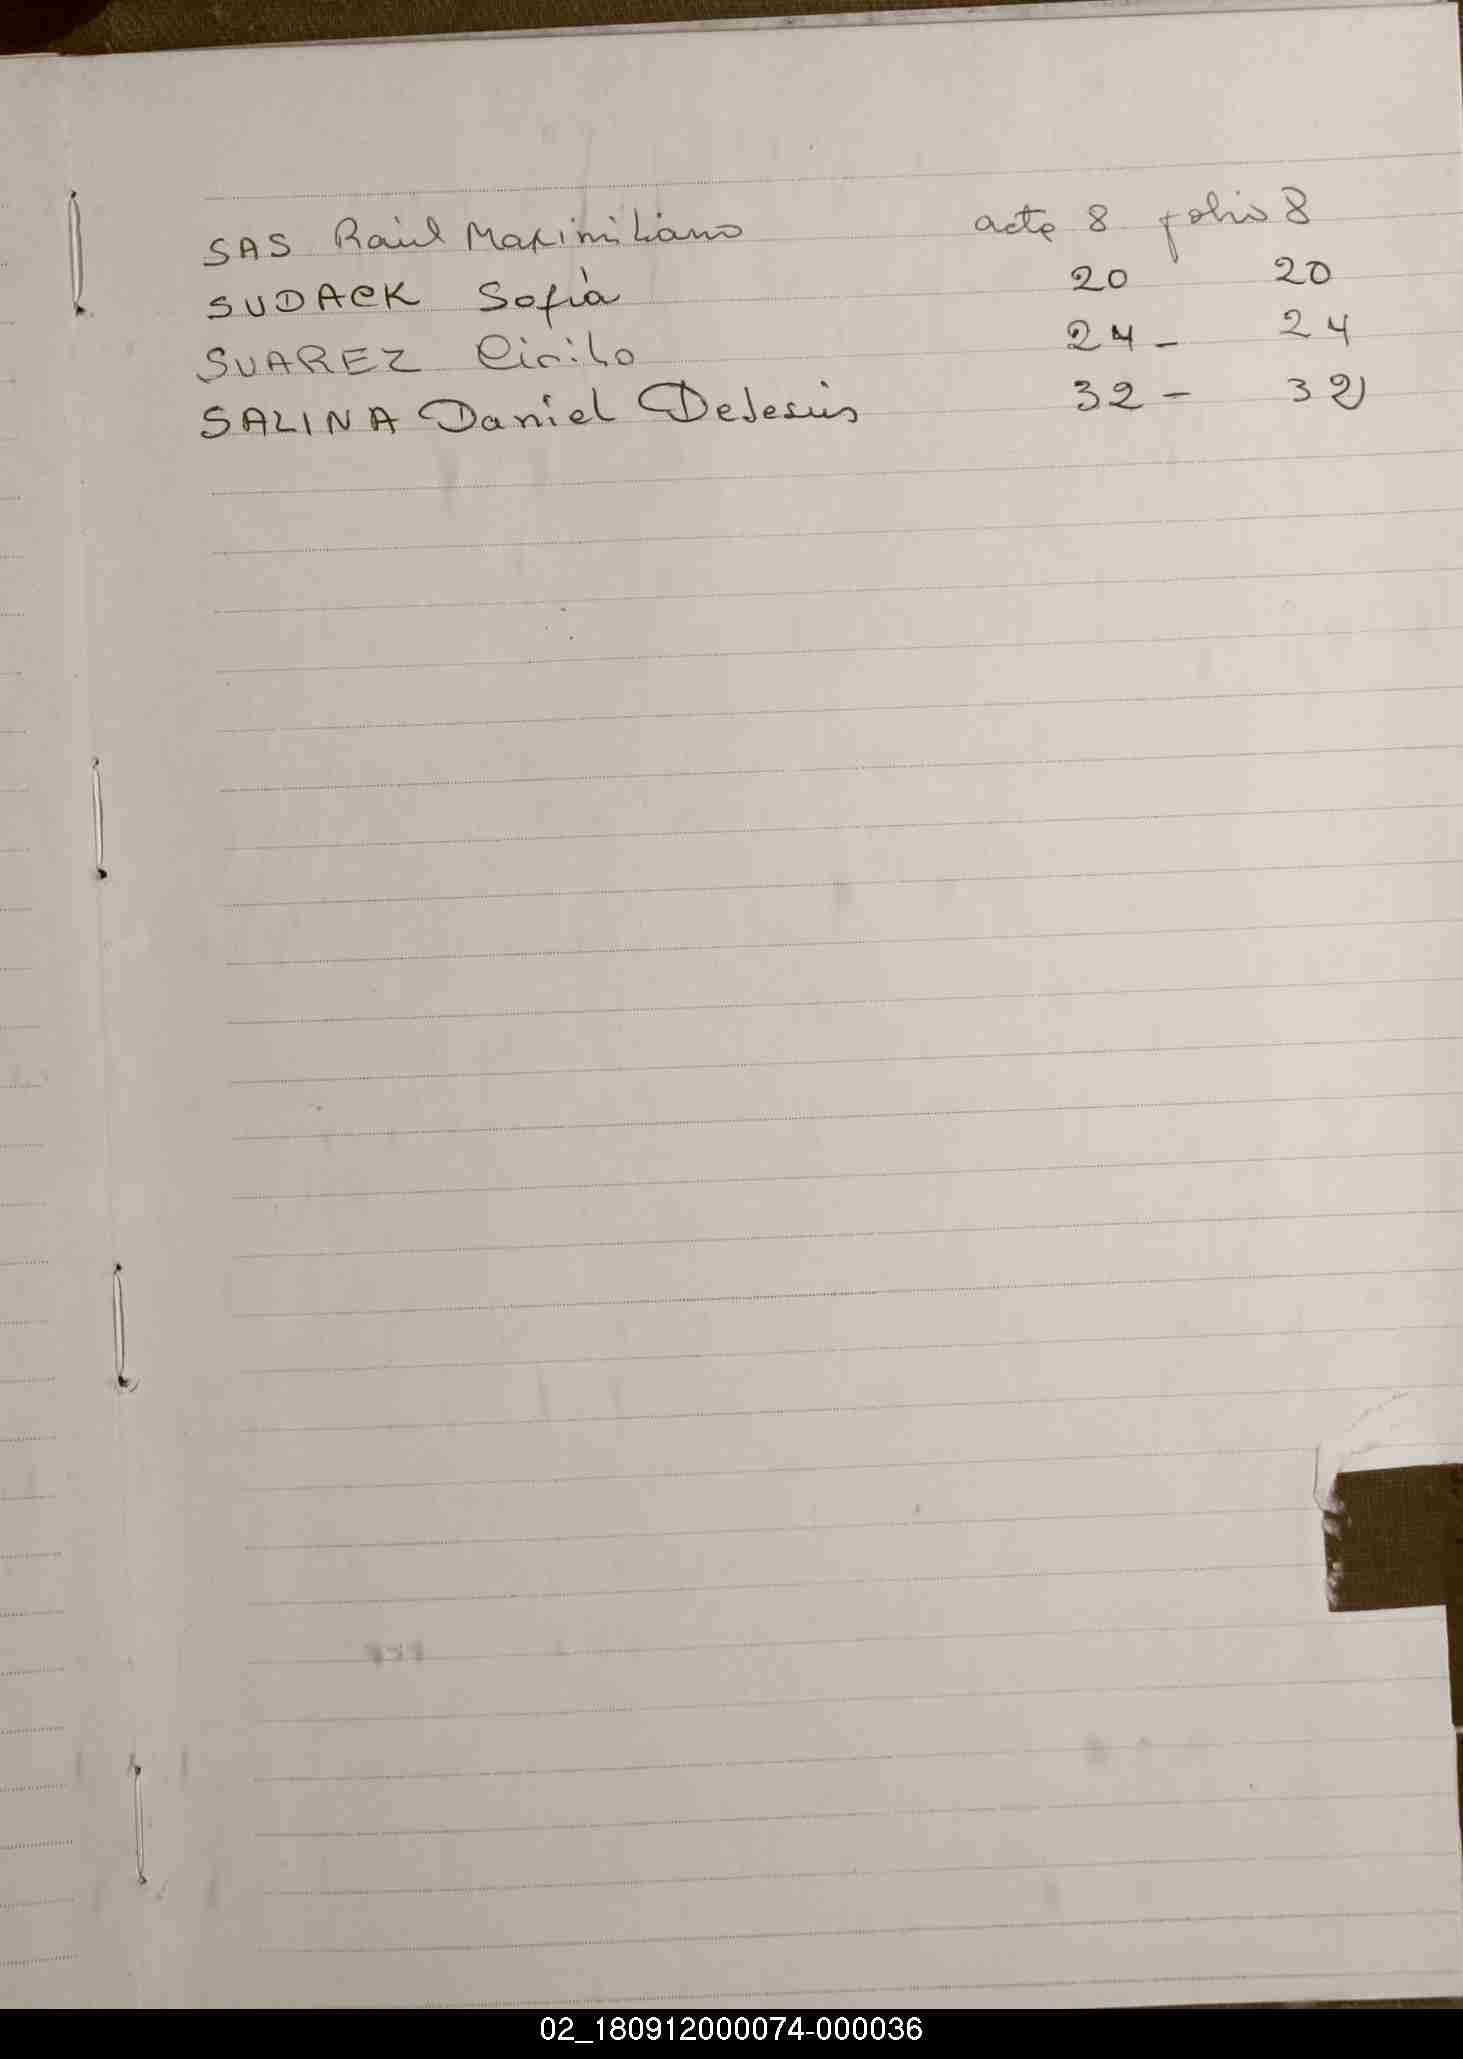 SAS Raúl Maximiliano acta 8 folio 8
SUDACK Sofía 20 20
SUAREZ Cirilo 24 - 24
SALINA Daniel DeJesús 32 - 32
02_180912000074-000036